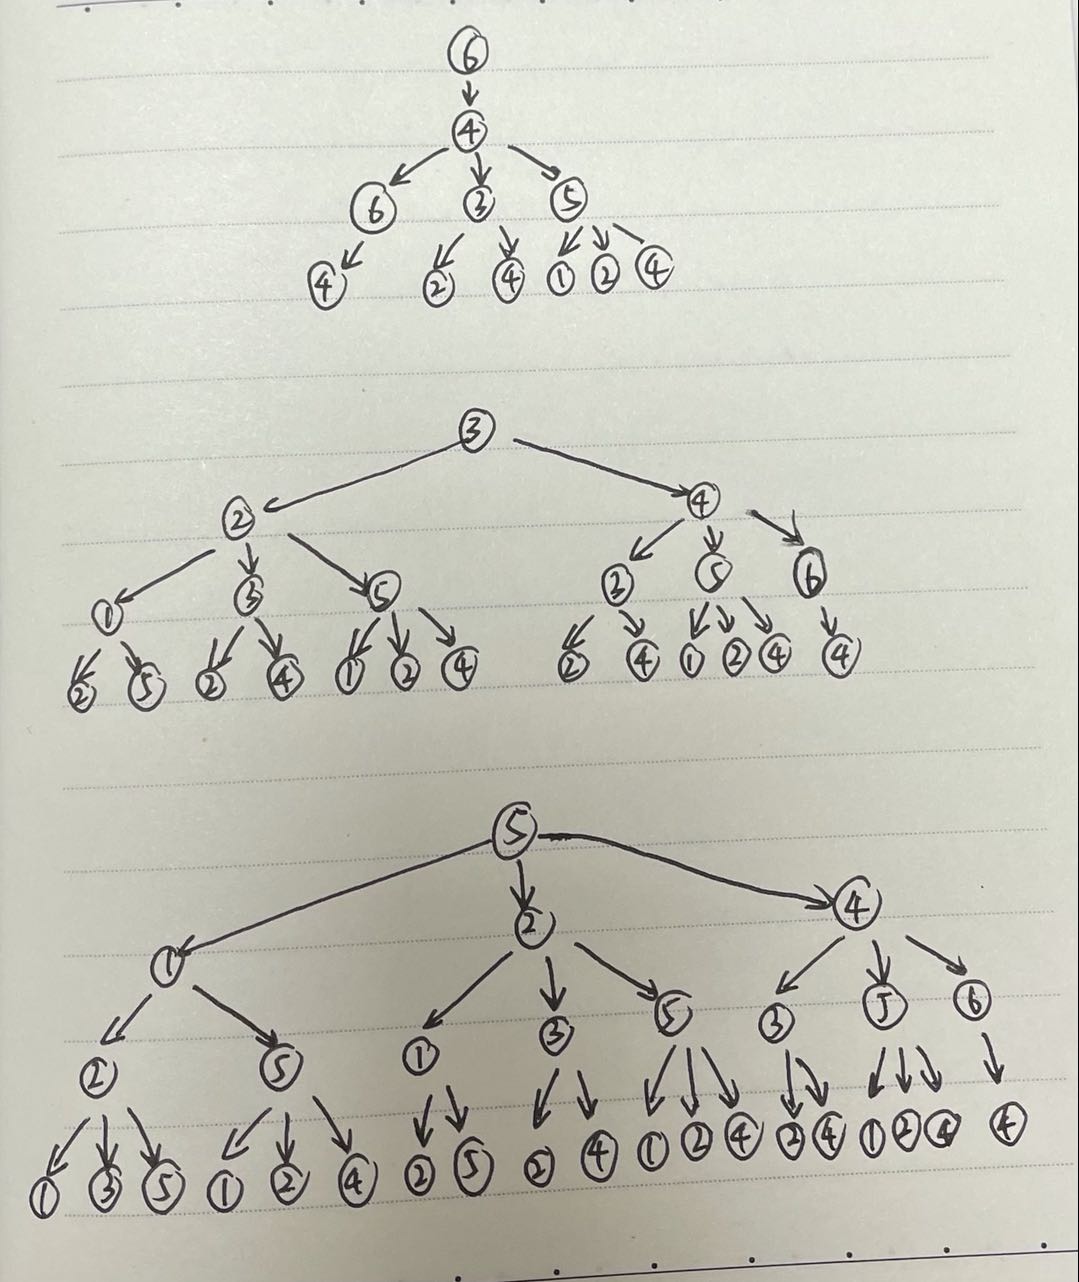 6
4
6 3 5
4 2 4 1 2 4
3
2 4
1 3 5 3 5 6
2 5 2 4 1 2 4 2 4 1 2 4 4
5
1 2 4
2 5 1 3 5 3 5 6
1 3 5 1 2 4 2 5 2 4 1 2 4 2 4 1 2 4 4